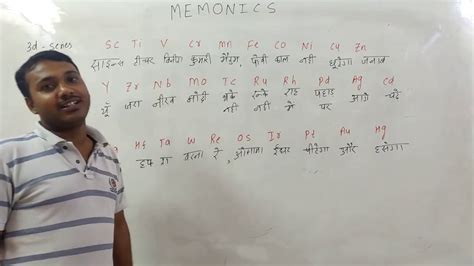 MEMONICS
3d-series Sc Ti V Cr Mn Fe Co Ni Cu Zn
साइन्स टीचर विजय कुमारी मैडम, फोकी काल नही छुयेगा जनाब
Y Zr Nb Mo Tc Ru Rh Pd Ag Cd
यूँ जरा नीरज मोदी रूके राह पहाड़ आगे
नही नही मे पर
Hf Ta W Re Os Ir Pt Au Hg
हफ ता वरना रे, ईश्वर पीटेगा और हसेगा